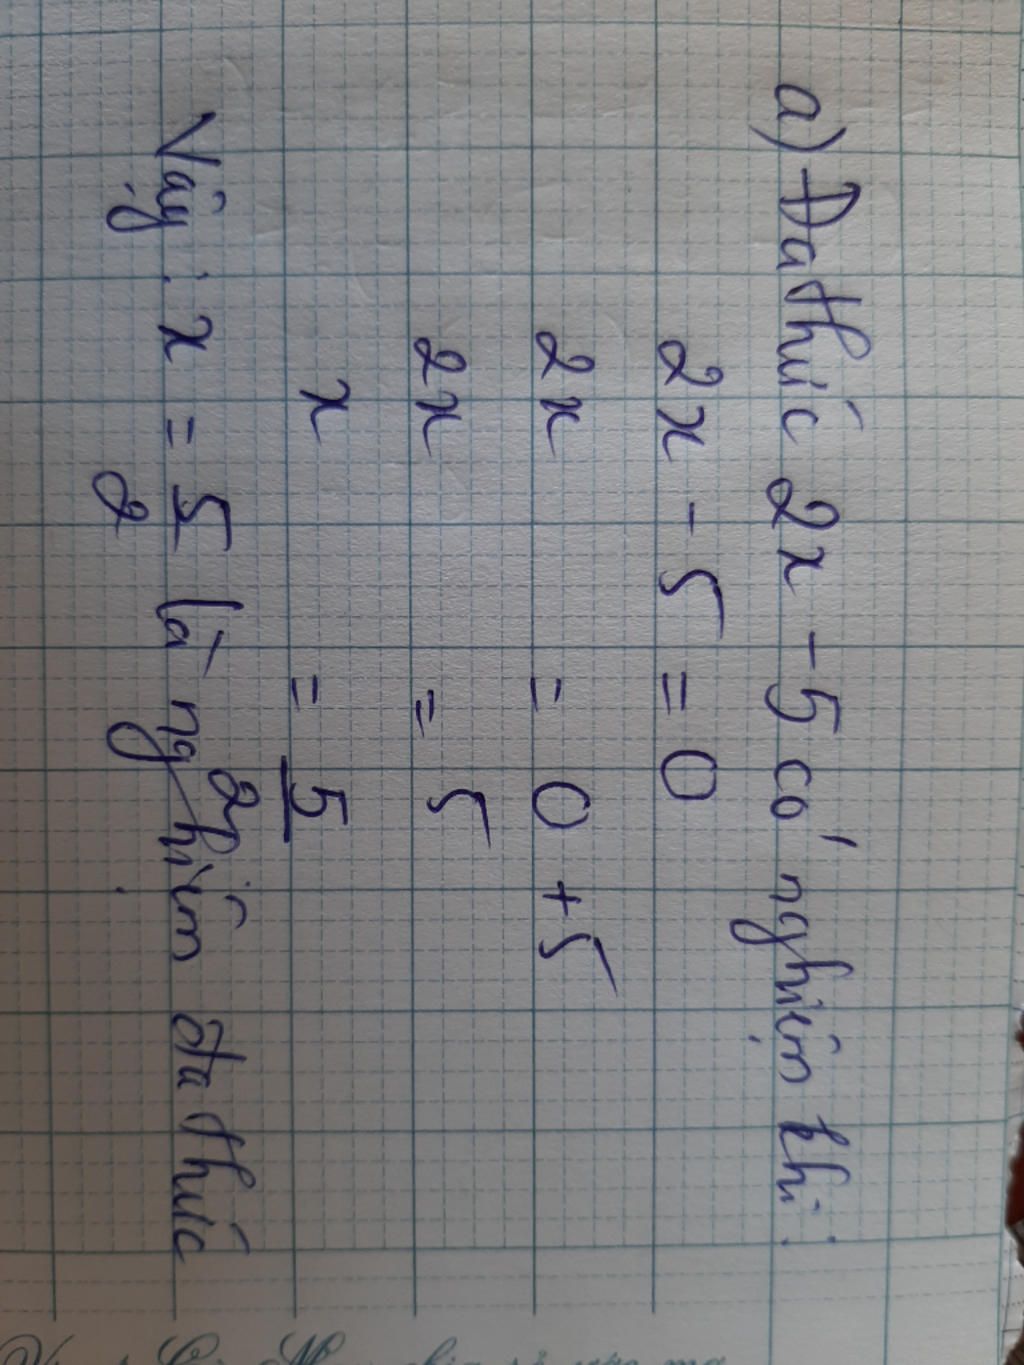 a) Đa thức 2x - 5 có nghiệm khi:
2x - 5 = 0
2x = 0 + 5
2x = 5
x = 5/2
Vậy: x = 5/2 là nghiệm đa thức